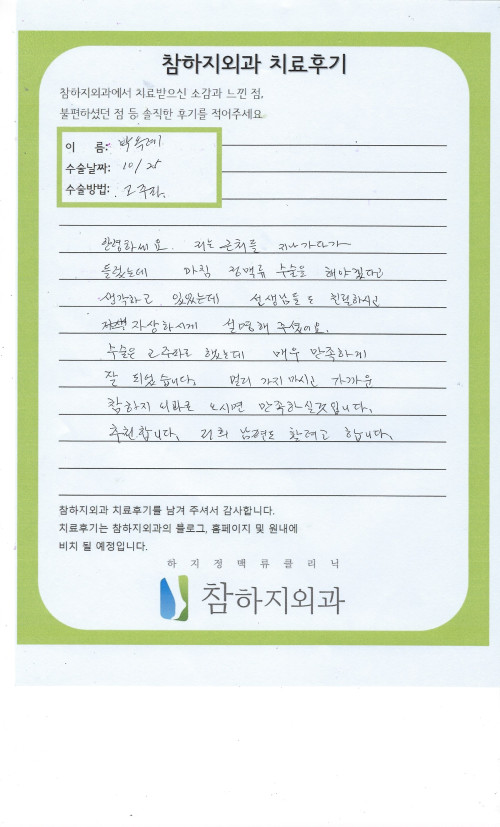 참하지외과 치료후기
참하지외과에서 치료받으신 소감과 느낀 점,
불편하셨던 점 등 솔직한 후기를 적어주세요
이 름:
수술날짜: 10/25
수술방법: 고주파.
안녕하세요. 저는 근처를 지나가다가
들렸는데 마침 정맥류 수술을 해야겠다고
생각하고 있었는데 선생님들도 친절하시고
자상하시게 설명해 주셨어요.
수술은 고주파로 했는데 매우 만족하게
잘 되었습니다. 멀리 가지 마시고 가까운
참하지외과로 오시면 만족하실것입니다.
추천합니다. 저희 남편도 할려고 합니다.
참하지외과 치료후기를 남겨 주셔서 감사합니다.
치료후기는 참하지외과의 블로그, 홈페이지 및 원내에
비치 될 예정입니다.
하지정맥류클리닉
참하지외과